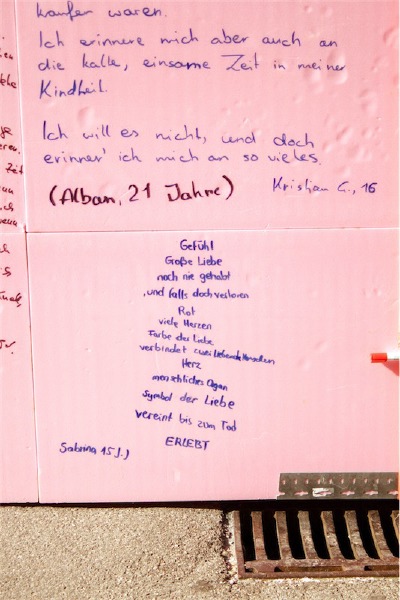 kaufen waren.
Ich erinnere mich aber auch an
die kalte, einsame Zeit in meiner
Kindheit.
Ich will es nicht, und doch
erinner' ich mich an so vieles.
(Alban, 21 Jahre)
Kristian G., 16
Gefühl
Große Liebe
noch nie gehabt
, und falls doch verloren
Rot
viele Herzen
Farbe der Liebe
verbindet zwei liebende Menschen
Herz
menschliches Organ
Symbol der Liebe
vereint bis zum Tod
ERLEBT
Sabrina 15 J.)